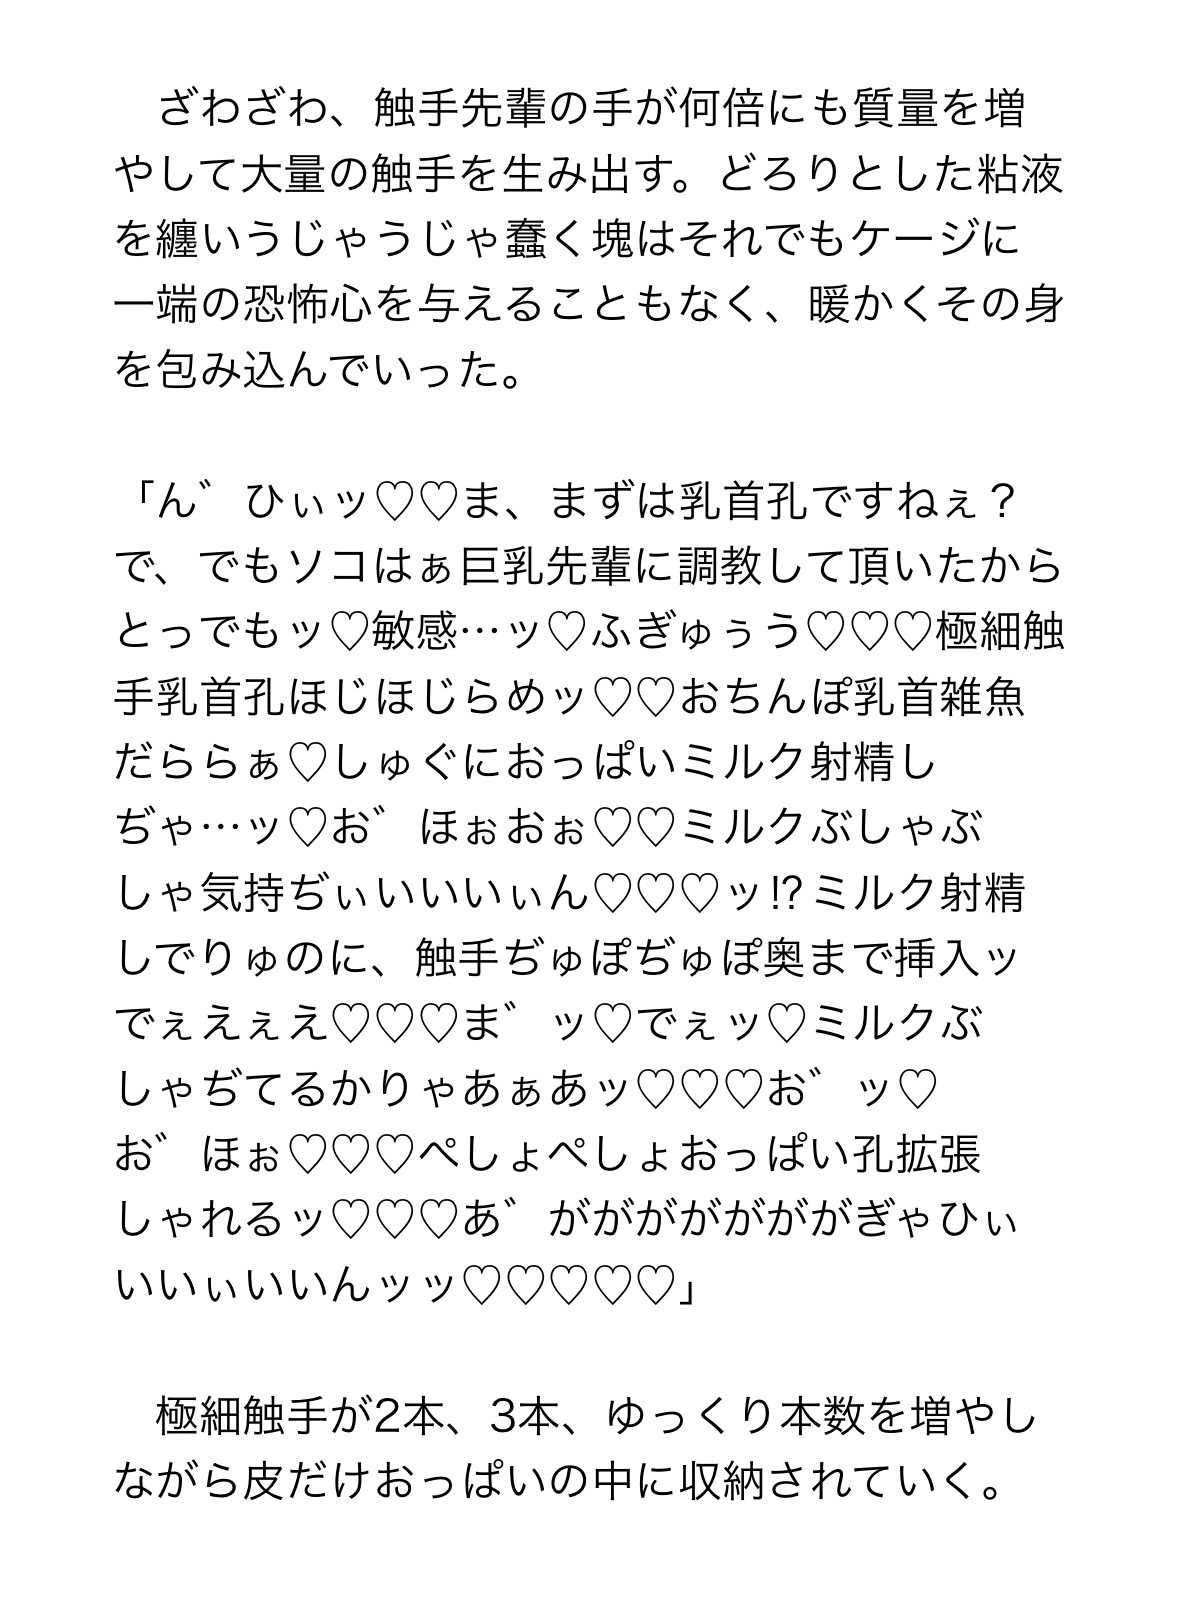 ざわざわ、触手先輩の手が何倍にも質量を増
やして大量の触手を生み出す。どろりとした粘液
を纏いうじゃうじゃ蠢く塊はそれでもケージに
一端の恐怖心を与えることもなく、暖かくその身
を包み込んでいった。
「ん゛ひぃッ♡♡ま、まずは乳首孔ですねぇ？
で、でもソコはぁ巨乳先輩に調教して頂いたから
とっでもッ♡敏感…ッ♡ふぎゅぅう♡♡♡極細触
手乳首孔ほじほじらめッ♡♡おちんぽ乳首雑魚
だららぁ♡しゅぐにおっぱいミルク射精し
ぢゃ…ッ♡お゛ほぉおぉ♡♡ミルクぶしゃぶ
しゃ気持ぢぃいいいぃん♡♡♡ッ⁉ミルク射精
しでりゅのに、触手ぢゅぽぢゅぽ奥まで挿入ッ
でぇえぇえ♡♡♡ま゛ッ♡でぇッ♡ミルクぶ
しゃぢてるかりゃあぁあッ♡♡♡お゛ッ♡
お゛ほぉ♡♡♡ぺしょぺしょおっぱい孔拡張
しゃれるッ♡♡♡あ゛がががががががぎゃひぃ
いいぃいいんッッ♡♡♡♡♡」
極細触手が2本、3本、ゆっくり本数を増やし
ながら皮だけおっぱいの中に収納されていく。